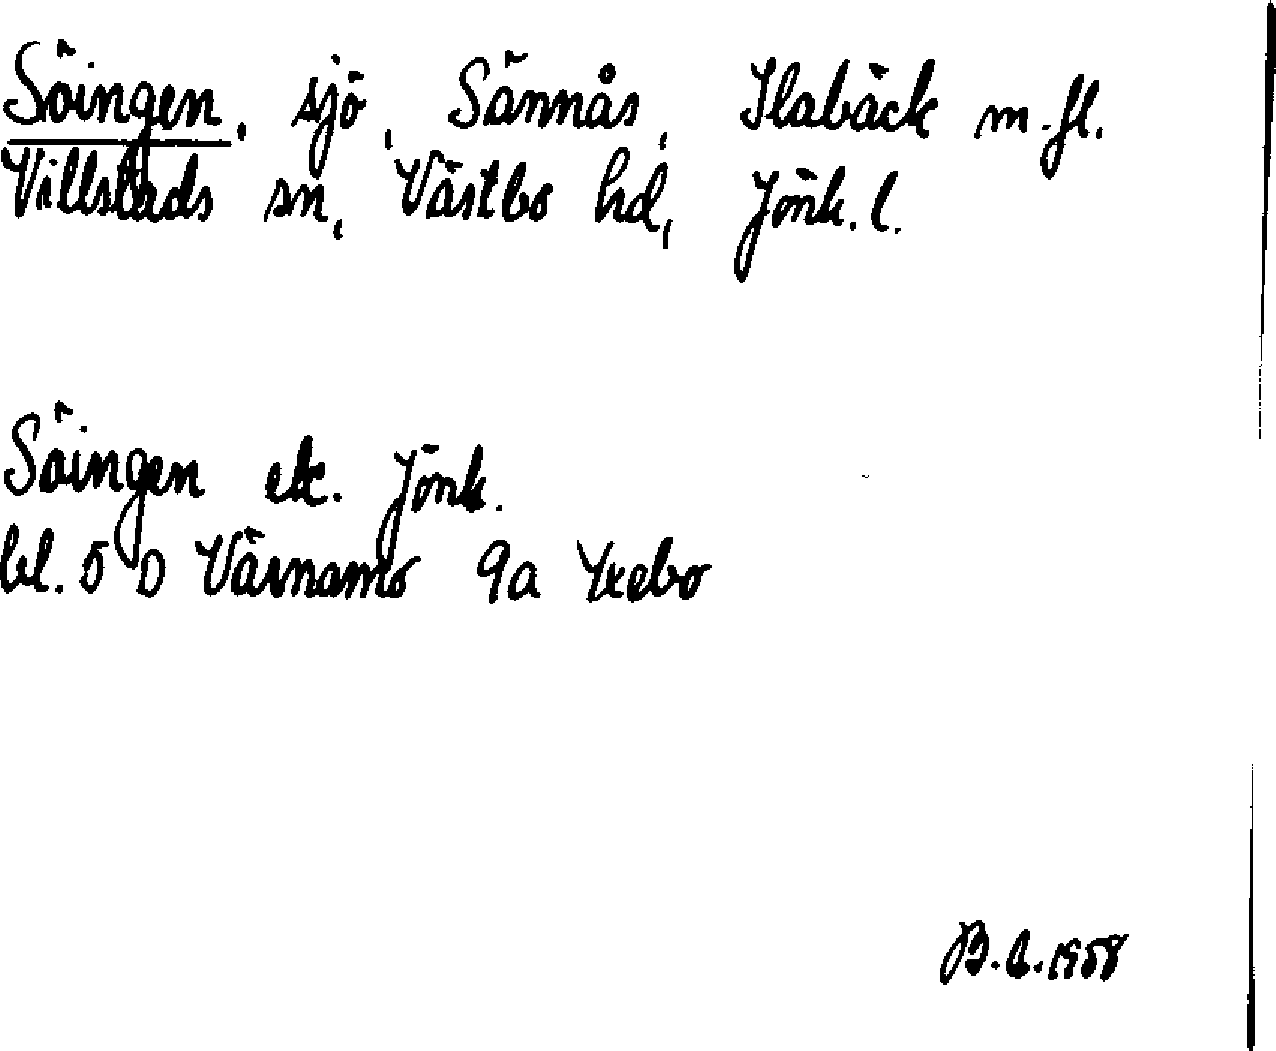 Söingen, sjö, Sännås, Ilabäck m.fl.
Villstads sn, Västbo hd, Jönk. l.
Söingen etc. Jönk.
bl. 5 D Värnamo 9a Yxebo
B.C. 1958